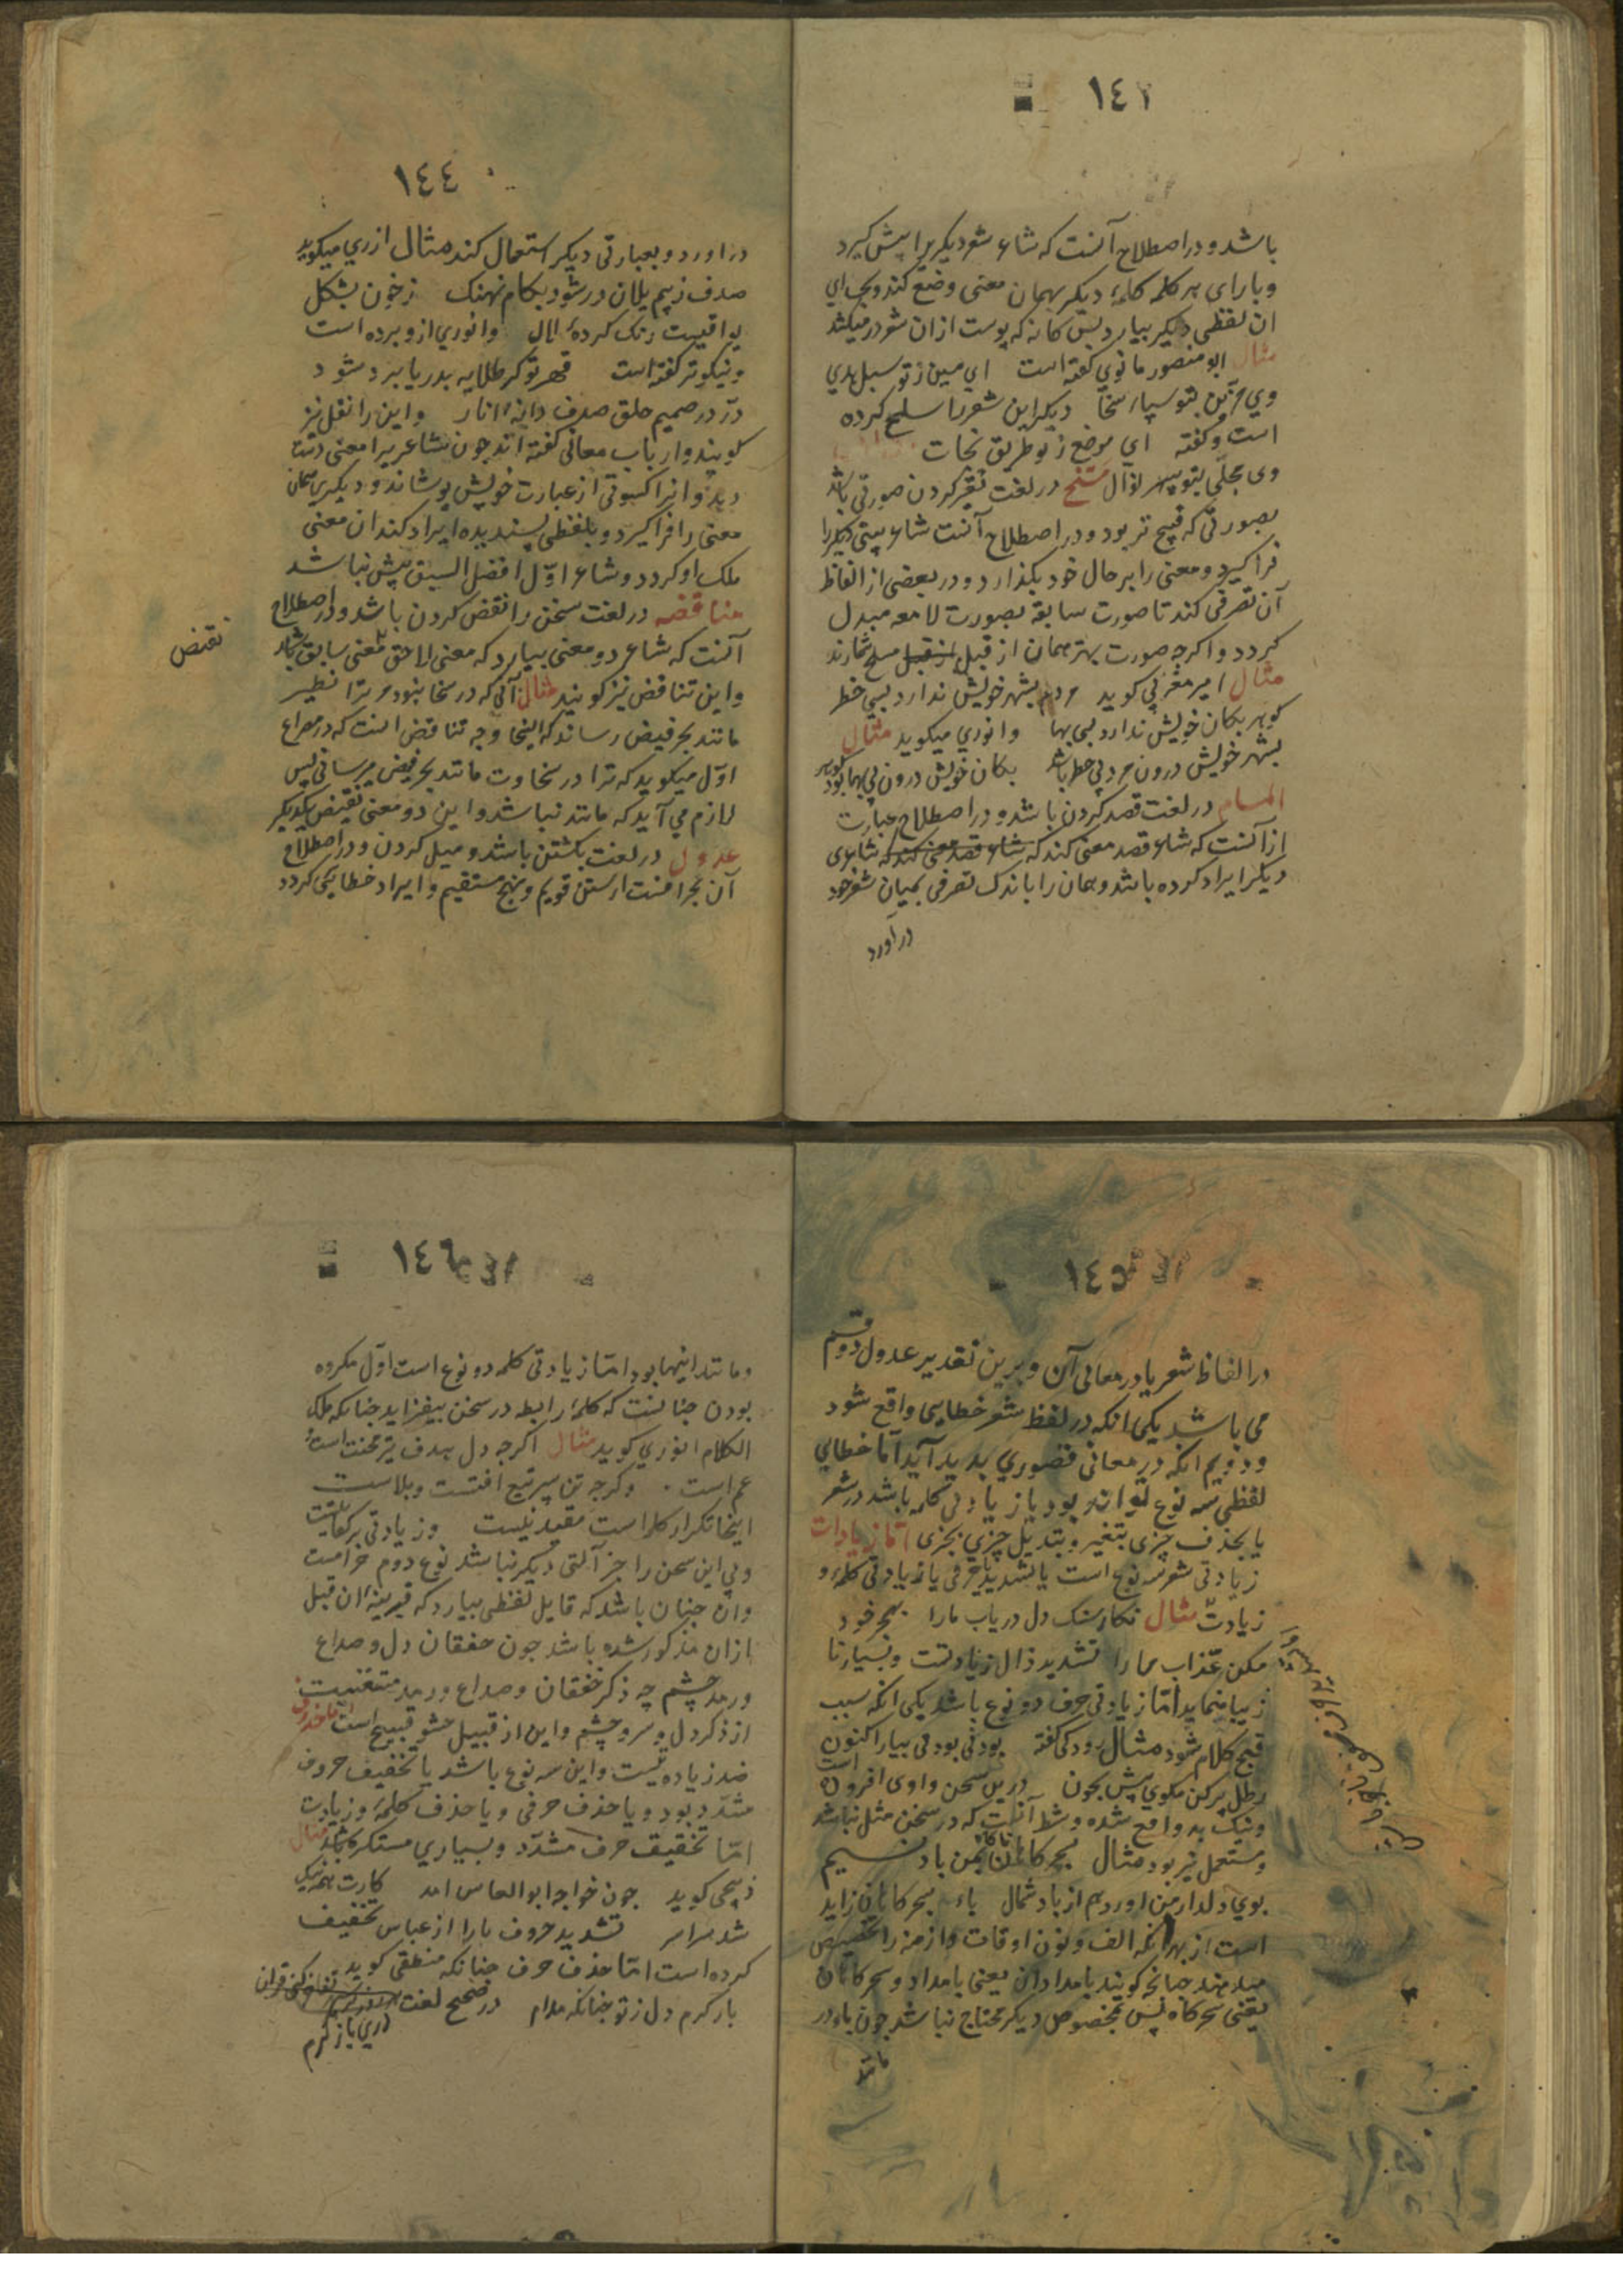 ١٤٢
باشد و در اصطلاح آنست که شاعر شعر دیکریرا پیش کیرد
و بارای هر کلمه کلمهٔ دیکر بهمان معنی وضع کند و بجای
ان لفظی دیکر بیارد پس کانه که پوست ازان شعر در میکشد
مثال ابو منصور مانوی کفته است ای مبین ز تو سبل هدی
وی مزین بتو سپاه سخا دیکر این شعر را سلخ کرده
است و کفته ای موضح ز تو طریق نجات
وی مجلّی بتو سپهر نوال مسخ در لغت تغیر کردن صورتی باشد
بصورتی که قبیح تر بود و در اصطلاح آنست شاعر بیتی دیکریرا
فرا کیرد و معنی را بر حال خود بکذارد و در بعضی از الفاظ
آن تصرفی کند تا صورت سابقه بصورت لامعه مبدل
کردد و اکرچه صورت بهتر همان از قبیل مسخ شمارند
مثال امیر مغزی کوید مردم بشهر خویش ندارد بسی خطر
کوهر بکان خویش ندارد بسی بها و انوری میکوید مثال
بشهر خویش درون مردم بی خطر باشد بکان خویش درون بی بها بود کوهر
المام در لغت قصد کردن باشد و در اصطلاح عبارت
از آنست که شاعر قصد معنی کند که شاعر قصد معنی کند که شاعری
دیکر ایراد کرده باشد و همان را باندک تصرفی بمیان شعر خود
در آورد
١٤٤
در آورد و بعبارتی دیکر استعمال کند مثال ازرقی میکوید
صدف ز بیم یلان در شود بکام نهنک ز خون بشکل
یواقیت رنک کرده لال و انوری ازو برده است
و نیکوتر کفته است قهر تو کر طلایه بدریا برد شود
درّ در صمیم حلق صدف دانهٔ انار و این را نقل نیز
کویند و ارباب معانی کفته اند چون شاعریرا معنی دست
دید و انرا کسوتی از عبارت خویش پوشاند و دیکری همان
معنی را فرا کیرد و بلفظی پسندیده ایراد کند ان معنی
ملک او کردد و شاعر اوّل افضل السبق بیش نباشد
مناقضه در لغت سخن را نقض کردن باشد و در اصطلاح
آنست که شاعر دو معنی بیارد که معنی لاحق نقض معنی سابق باشد
نقیض
و این تناقض نیز کویند مثال آنی که در سخا نبود مر ترا نظیر
مانند بحر فیض رساند که اینجا وجه تناقض انست که در مصراع
اوّل میکوید که ترا در سخاوت مانند بحر فیض میرسانی پس
لازم می آید که مانند نباشد و این دو معنی نقیض یکدیکر
عدول در لغت بکشتن باشد و میل کردن و در اصطلاح
آن انحرافست از سنن قویم و نهج مستقیم و ایراد خطا یکی کردد
١٤٥
در الفاظ شعر یا در معانی آن و برین تقدیر عدول دو قسم
می باشد یکی انکه در لفظ شعر خطایی واقع شود
و دویم انکه در معانی قصوری پدید آید امّا خطایی
لفظی سه نوع تواند بود یا زیادتی کلمه باشد در شعر
یا بحذف چیزی بتغیر و بتدیل چیزی بچزی امّا زیادات
زیادتی شعر سه نوع است یا تشدید حرفی یا زیادتی کلمه و
زیادت مثال نکار سنک دل دریاب مارا بهجر خود
مکن عذّاب مارا تشدید ذال زیادتست و بسیار نا
زیبا مینماید امّا زیادتی حرف دو نوع باشد یکی انکه سبب
قبح کلام شود مثال رودکی کفته بودنی بود می بیار اکنون
رطل پر کن مکوی بیش سخون درین سخن واوی افزون است
و نیک بد واقع شده و شط آنست که در سخن مثل نباشد
و مستعمل نیز بود مثال سحرکاهان بمن باد نسیم
بوی دلدار من اورد هم از باد شمال یاء سحرکاهان زاید
است از بهر انکه الف و نون اوقات و ازمنه را تخصیص
میدهند چنانچه کویند بامدادان یعنی بامداد و سحرکاهان
یعنی سحرکاه پس مخصوص دیکر محتاج نباشد چون باد در
مانند
١٤٦
و مانند اینها بود امّا زیادتی کلمه دو نوع است اوّل مکروه
بودن چنانست که کلمهٔ رابطه در سخن بیفزاید چنانکه ملک
الکلام انوری کوید مثال اکرچه دل هدف تیر محنت است و
غم است وکرچه تن سپر تیغ افتست و بلاست
اینجا تکرار کلمه است مفید نیست و زیادتی برکفایتست
و بی این سخن را جز آلتی دیکر نباشد نوع دوم حرامست
و ان چنان باشد که قایل لفظی بیارد که قرینهٔ ان قبل
ازان مذکور شده باشد چون خفقان دل و صداع
و رمد چشم چه ذکر خفقان و صداع و رمد مستغنیست
از ذکر دل و سر و چشم و این از قبیل حشو قبیح است امّا حذف
ضد زیادتیست و این سه نوع باشد یا تخفیف حروف
مشدّد بود و یا حذف حرفی و یا حذف کلمهٔ و زیادت
امّا تخفیف حرف مشدّد و بسیاری مستکره باشد مثال
کوید چون خواجه ابوالعباس امد کارت همه نیک
شد سراسر تشدید حروف بارا از عباس تخفیف
کرده است امّا حذف حرف چنانکه منطقی کوید
باز کرم دل ز تو چنانکه مدام در صحیح لغت
دری باز کرم